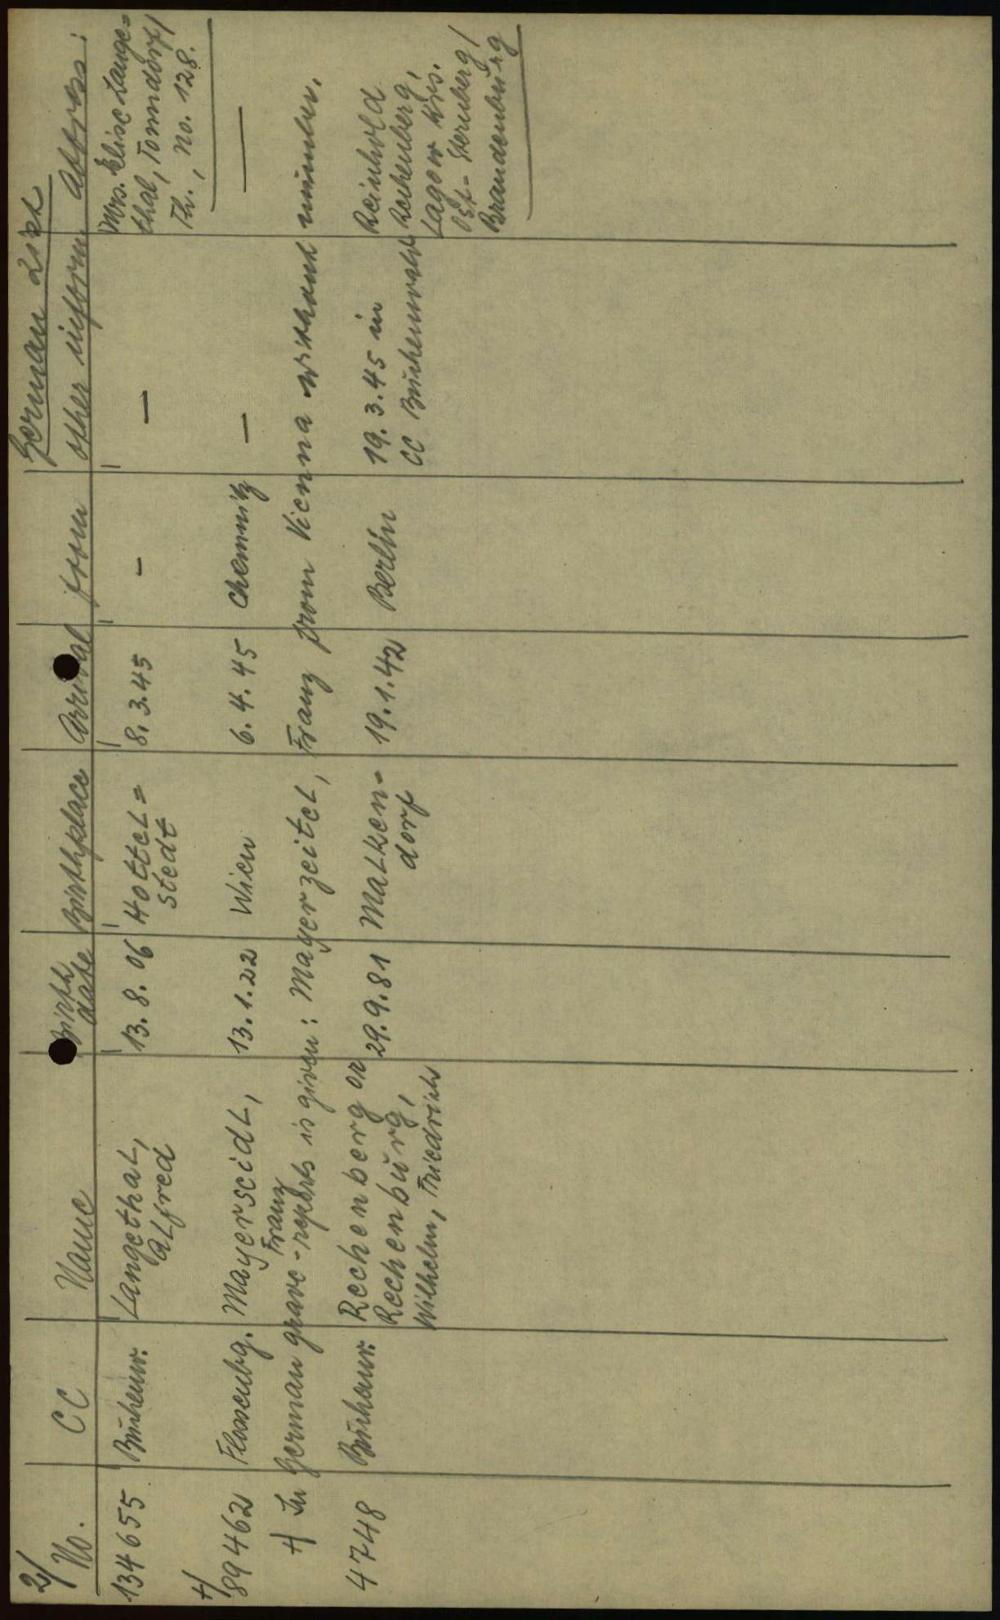 2/
German List
No. CC Name Birth date Birthplace Arrival from other inform. Address:
134655 Buchenw. Langethal, 13. 8. 06 Hottel= 8. 3. 45 - - Mrs. Elise Lange=
Alfred stedt thal, Tonndorf/
Th., No. 128.
+/
89462 Flossenbg. Mayerseidl, 13. 1. 22 Wien 6. 4. 45 Chemnitz - -
Franz
+/ In German grave-reports is given: Mayerzeitel, Franz from Vienna without number.
4748 Buchenw. Rechenberg or 29. 9. 81 Malken- 19. 1. 42 Berlin 19. 3. 45 in Reinhold
Rechenburg, dorf CC Buchenwald Rechenberg,
Wilhelm, Friedrich Lagow Krs.
Ost-Sternberg/
Brandenburg